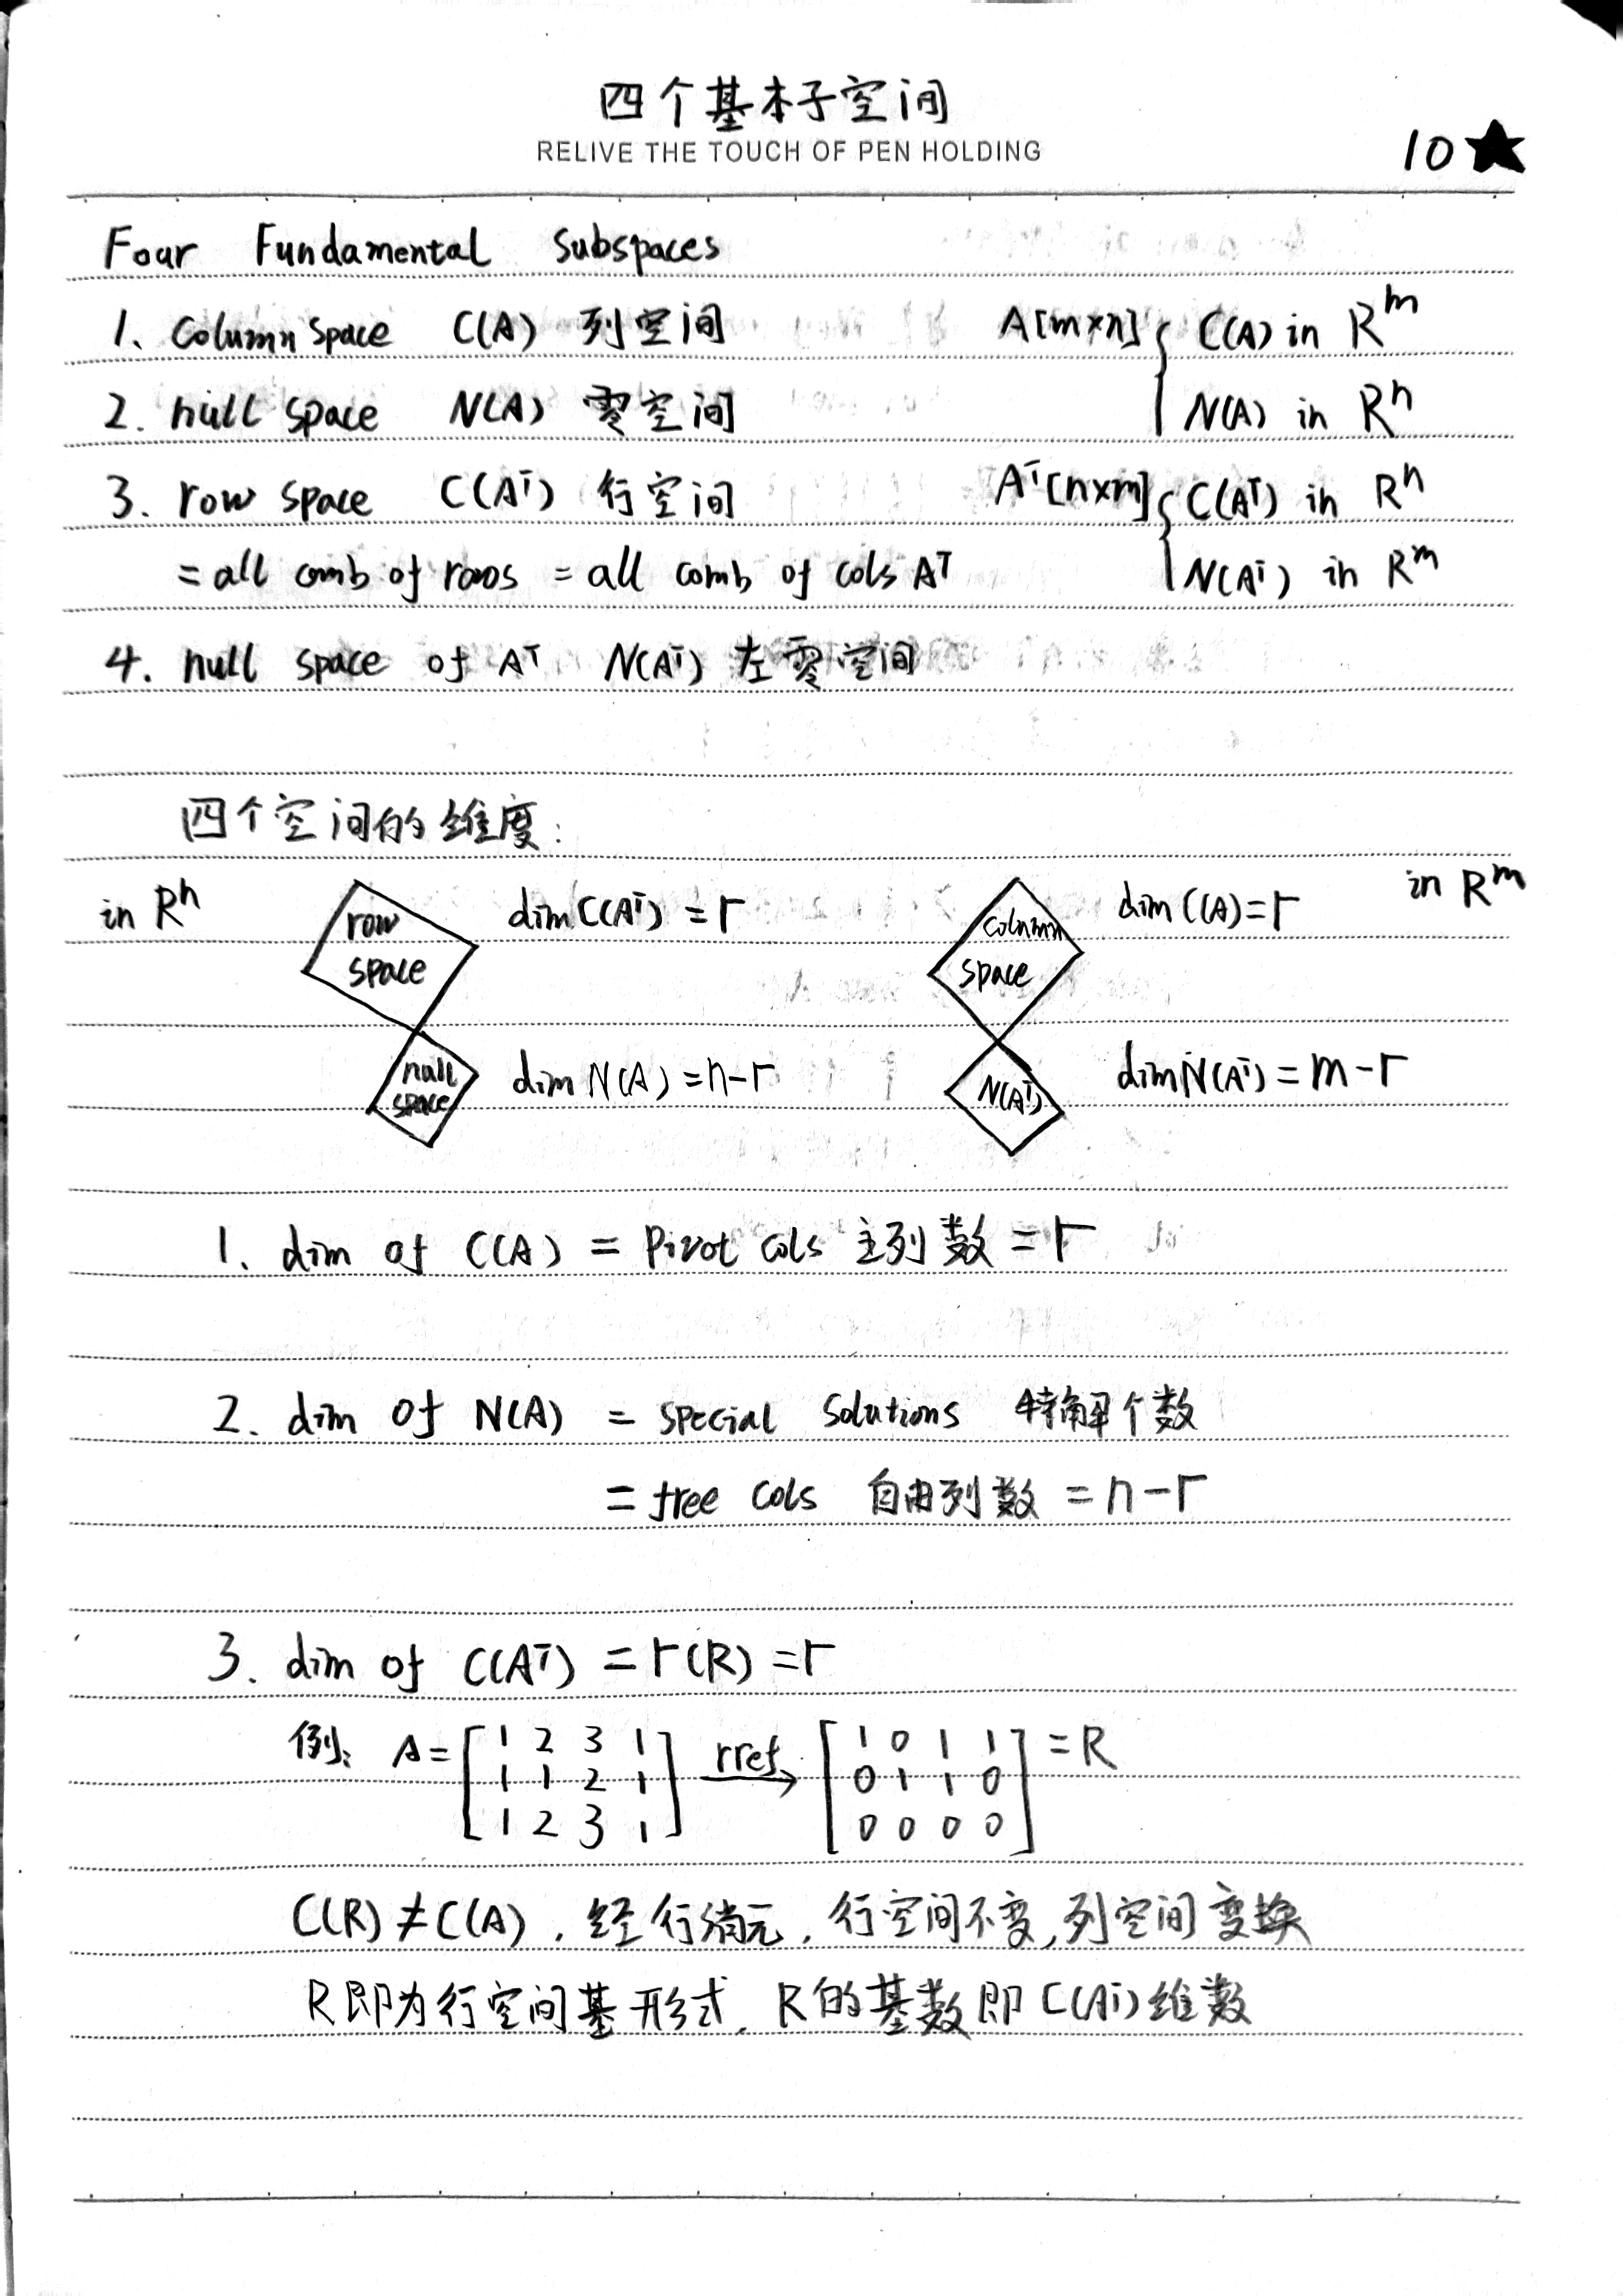 四个基本子空间
RELIVE THE TOUCH OF PEN HOLDING
10★
Four Fundamental Subspaces
1. column space C(A) 列空间 A[m×n] { C(A) in Rᵐ
2. null space N(A) 零空间 N(A) in Rⁿ
3. row space C(Aᵀ) 行空间 Aᵀ[n×m] { C(Aᵀ) in Rⁿ
= all comb of rows = all comb of cols Aᵀ N(Aᵀ) in Rᵐ
4. null space of Aᵀ N(Aᵀ) 左零空间
四个空间的维度:
in Rⁿ row space dim C(Aᵀ) = r column space dim C(A) = r in Rᵐ
null space dim N(A) = n-r N(Aᵀ) dim N(Aᵀ) = m-r
1. dim of C(A) = Pivot cols 主列数 = r
2. dim of N(A) = special solutions 特解个数
= free cols 自由列数 = n-r
3. dim of C(Aᵀ) = r(R) = r
例: A = [1 2 3 1 rref→ [1 0 1 1 = R
1 1 2 1 0 1 1 0
1 2 3 1] 0 0 0 0]
C(R) ≠ C(A), 经行消元, 行空间不变, 列空间变换
R即为行空间基形式, R的基数即C(Aᵀ)维数